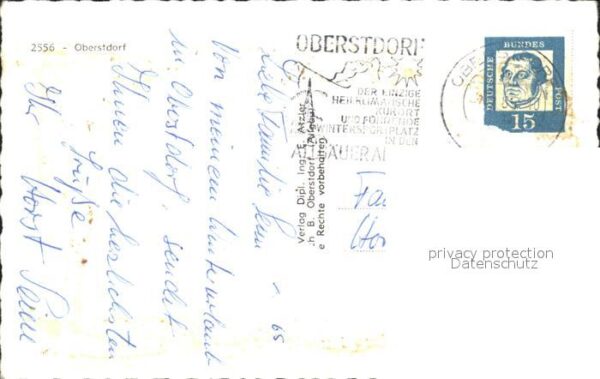 2556 - Oberstdorf
OBERSTDORF
DER EINZIGE
HEILKLIMATISCHE
KURORT
UND FÜHRENDE
WINTERSPORTPLATZ
IN DEN
DEUTSCHE BUNDESPOST
15
Liebe Familie
Von meinem Winterurlaub
in Oberstdorf sendet
Ihnen die herzlichsten
Grüße
Ihr Horst
65
Verlag Dipl. Ing. E. Atzler
B. Oberstdorf (Allgäu)
e Rechte vorbehalten
Fa
privacy protection
Datenschutz